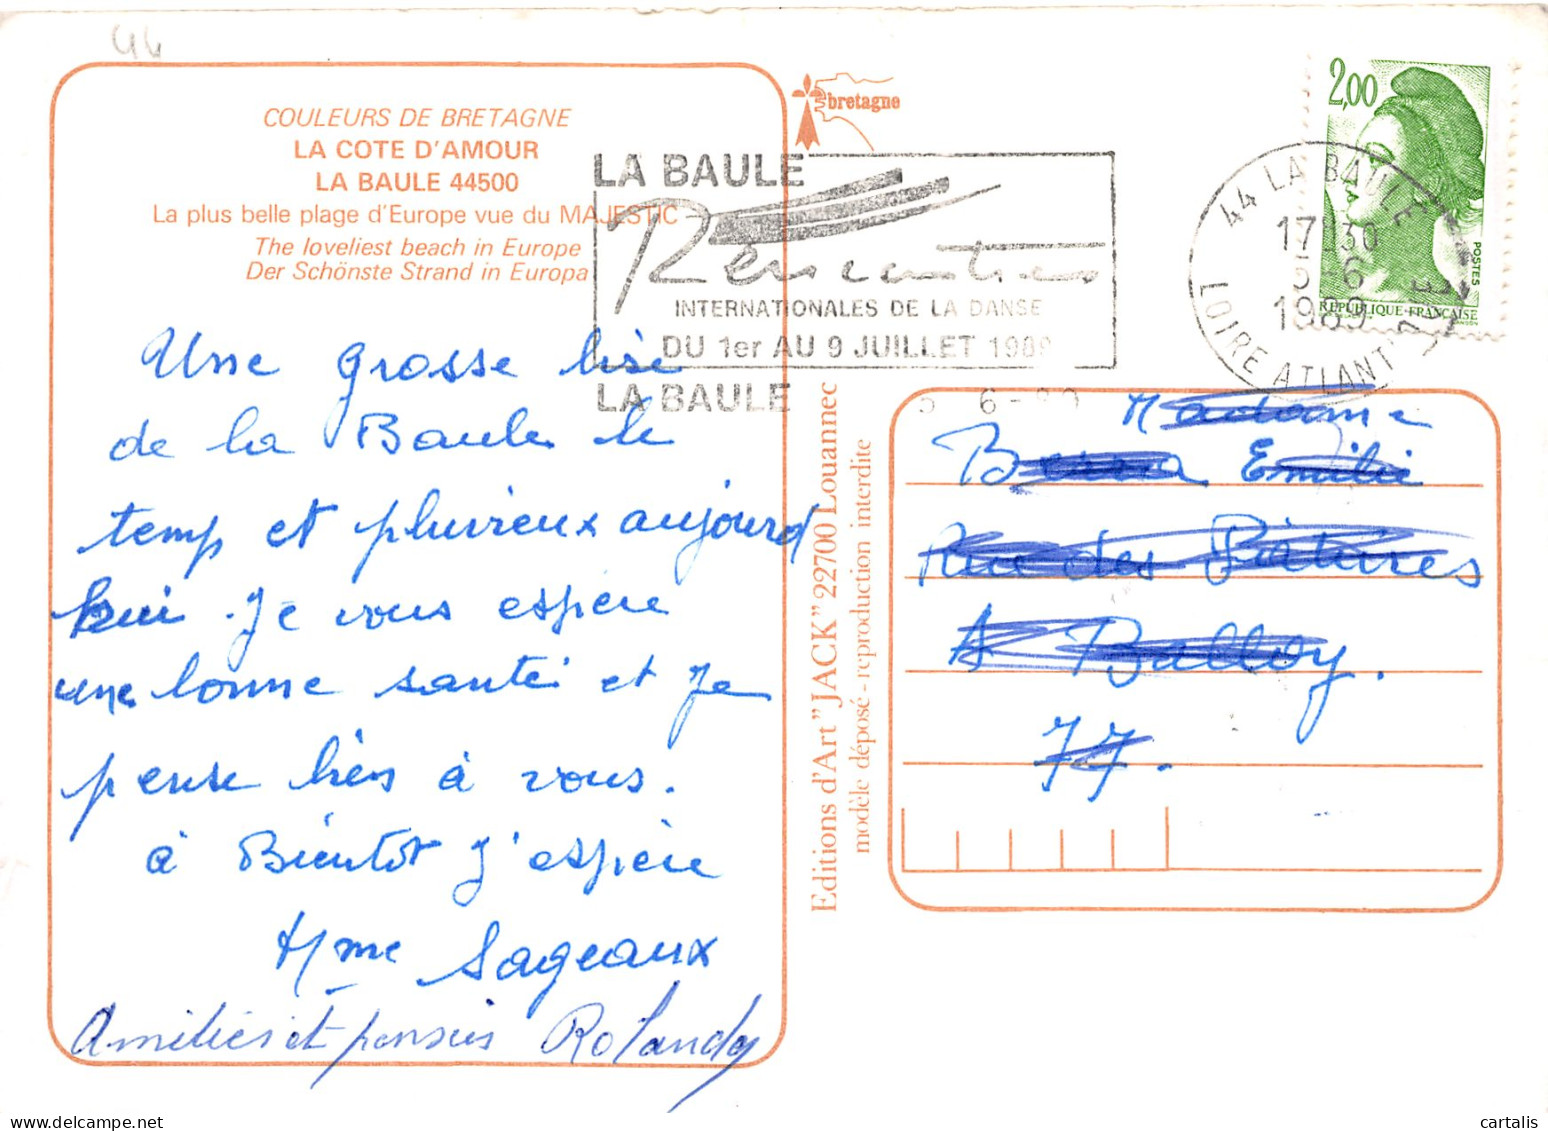 44
COULEURS DE BRETAGNE
LA COTE D'AMOUR
LA BAULE 44500
La plus belle plage d'Europe vue du MAJESTIC
The loveliest beach in Europe
Der Schönste Strand in Europa
Une grosse bise
de la Baule le
temp et pluvieux aujourd
hui . Je vous espère
une bonne santé et je
pense bien à vous.
à Bientot j'espère
Mme Sageaux
Amitiés et pensées Rolande
bretagne
LA BAULE
Rencontres
INTERNATIONALES DE LA DANSE
DU 1er AU 9 JUILLET 1989
LA BAULE
5 6-89
44 LA BAULE
17H30
5-6
1989
LOIRE ATLANT
2,00
POSTES
REPUBLIQUE FRANÇAISE
Editions d'Art "JACK" 22700 Louannec
modèle déposé - reproduction interdite
Madame
Emilie
Rue des Pâtures
A Balloy.
77.
cartalis